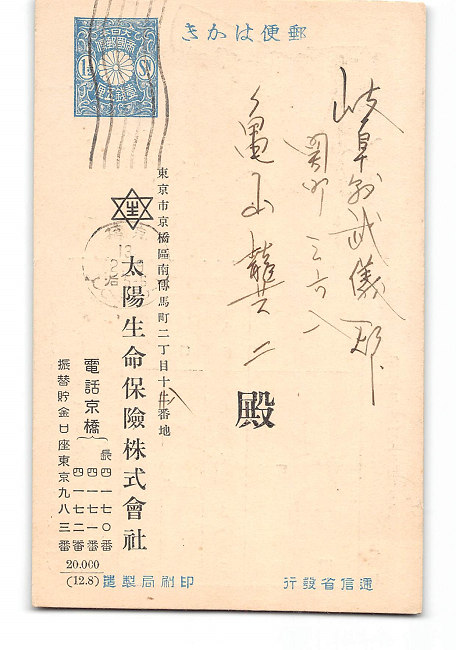 郵便はかき
岐阜縣武儀郡
関町三六八
亀山龍二
殿
東京市京橋區南傳馬町二丁目十番地
太陽生命保險株式會社
電話京橋
長四一七〇番
四一七一番
四一七二番
振替貯金口座東京九八三番
20.000
(12.8)
印刷局製造
遞信省發行